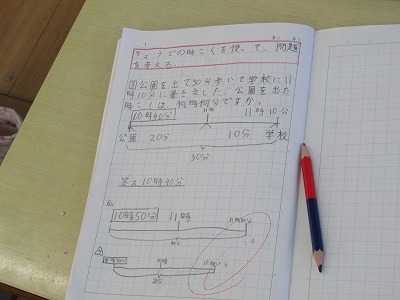 ちょうどの時こくを使って、問題
を考える。
③公園を出て30分歩いて学校に11
時10分に着きました。公園を出た
時こくは、何時何分ですか。
10時40分 11時 11時10分
公園 20分 10分 学校
30分
答え10時40分
10時50分 11時